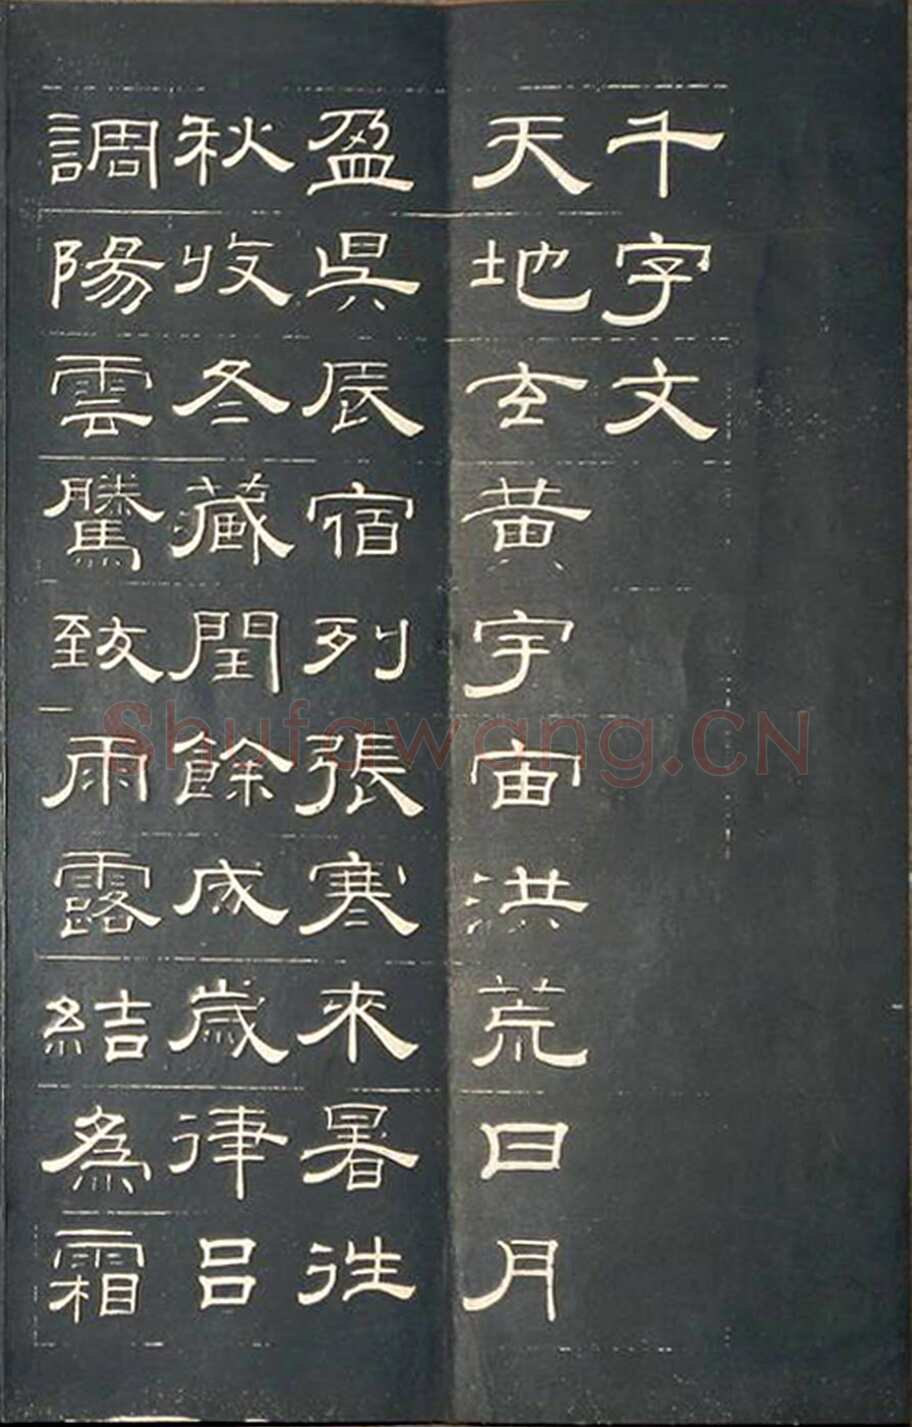 千字文
天地玄黃宇宙洪荒日月
盈昃辰宿列張寒來暑往
秋收冬藏閏餘成歲律呂
調陽雲騰致雨露結為霜
Shufawang.CN